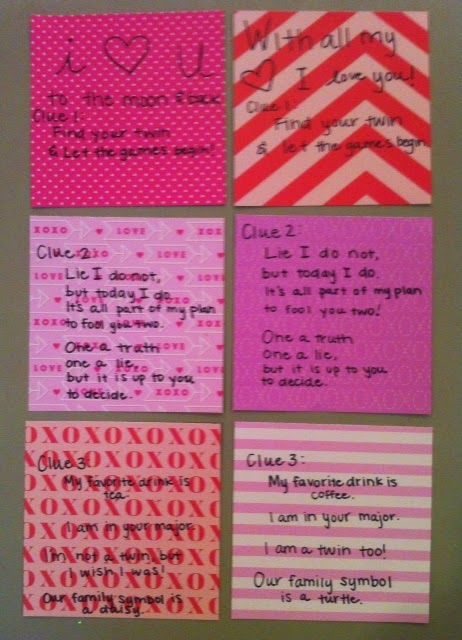 i ♡ U
to the moon & back
Clue 1:
Find your twin
& Let the games begin!
With all my
♡ I love you!
Clue 1:
Find your twin
& let the games begin
Clue 2:
Lie I do not,
but today I do.
It's all part of my plan
to fool you two.
One a truth
one a lie,
but it is up to you
to decide.
Clue 2:
Lie I do not,
but today I do.
It's all part of my plan
to fool you two!
One a truth
one a lie,
but it is up to you
to decide.
Clue 3:
My favorite drink is
tea.
I am in your major.
I'm not a twin, but
I wish I was!
Our family symbol is
a daisy.
Clue 3:
My favorite drink is
coffee.
I am in your major.
I am a twin too!
Our family symbol
is a turtle.